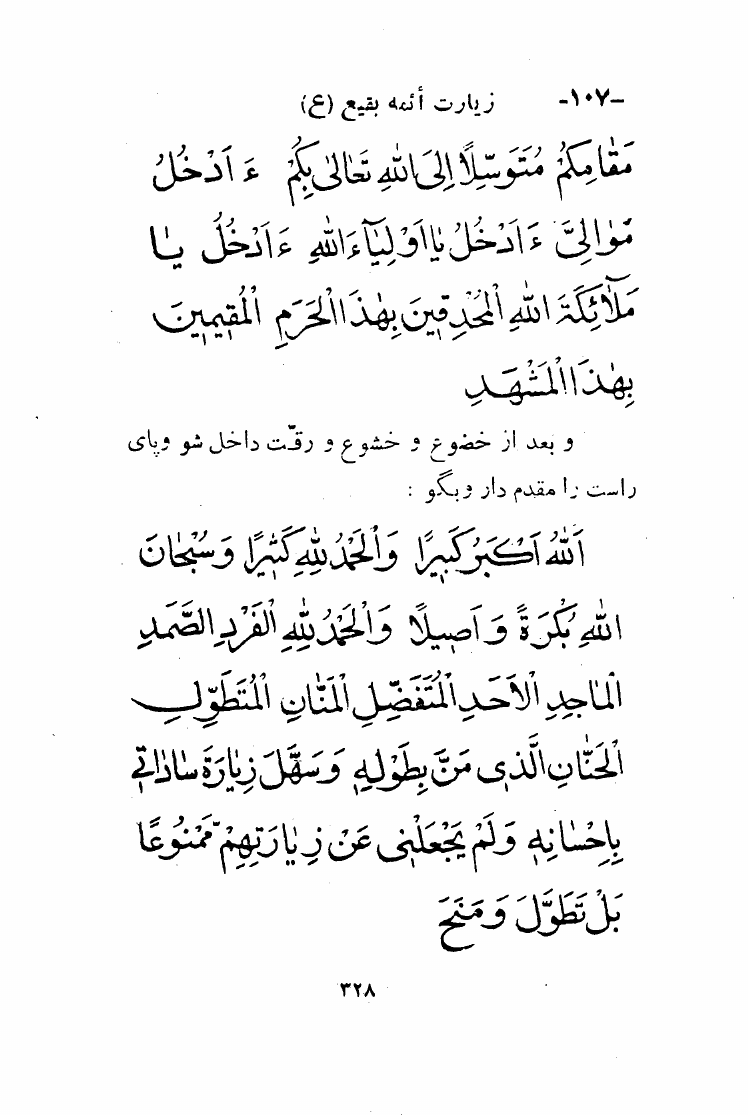 -۱۰۷- زیارت أئمه بقیع (ع)
مَقامِكُمْ مُتَوَسِّلًا اِلَى اللّٰهِ تَعالىٰ بِكُمْ ءَ اَدْخُلُ
مَوالِيَّ ءَ اَدْخُلُ يا اَوْلِيآءَ اللّٰهِ ءَ اَدْخُلُ يا
مَلآئِكَةَ اللّٰهِ الْمُحْدِقينَ بِهٰذَا الْحَرَمِ الْمُقيمينَ
بِهٰذَا الْمَشْهَدِ
و بعد از خضوع و خشوع و رقّت داخل شو وپای
راست را مقدم دار وبگو :
اَللّٰهُ اَكْبَرُ كَبيرًا وَالْحَمْدُ لِلّٰهِ كَثيرًا وَ سُبْحانَ
اللّٰهِ بُكْرَةً وَ اَصيلًا وَالْحَمْدُ لِلّٰهِ الْفَرْدِ الصَّمَدِ
الْماجِدِ الْاَحَدِ الْمُتَفَضِّلِ الْمَنّانِ الْمُتَطَوِّلِ
الْحَنّانِ الَّذى مَنَّ بِطَوْلِهِ وَ سَهَّلَ زِيارَةَ ساداتى
بِاِحْسانِهِ وَ لَمْ يَجْعَلْنى عَنْ زِيارَتِهِمْ مَمْنُوعًا
بَلْ تَطَوَّلَ وَ مَنَحَ
۳۲۸